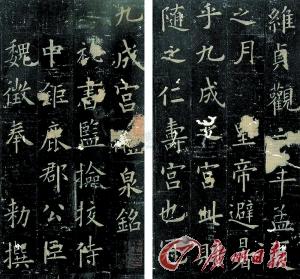 九成宮泉銘
書監撿挍侍
中鉅鹿郡公臣
魏徵奉 勑撰
維貞觀年孟
之月 皇帝避暑
乎九成之宮此則
隨之仁壽宮也
廣州日報